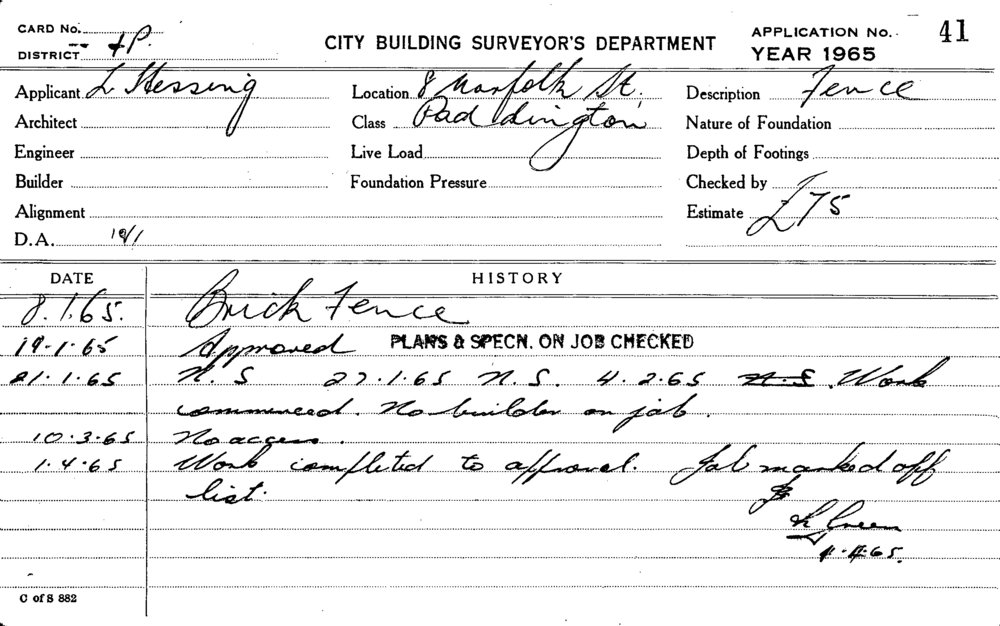 CARD No.
DISTRICT
CITY BUILDING SURVEYOR'S DEPARTMENT
APPLICATION No. 41
YEAR 1965
Applicant L Hessing
Location 8 Norfolk St,
Description Fence
Architect
Class Paddington
Nature of Foundation
Engineer
Live Load
Depth of Footings
Builder
Foundation Pressure
Checked by
Alignment
Estimate £75
D.A.
DATE HISTORY
8.1.65. Brick Fence
19-1-65 Approved PLANS & SPECN. ON JOB CHECKED
21.1.65 N.S 27.1.65 N.S. 4.2.65 N.S. Work
commenced. No builder on job.
10.3.65 No access.
1.4.65 Work completed to approval. Job marked off
list.
Green
1.4.65.
C of S 882